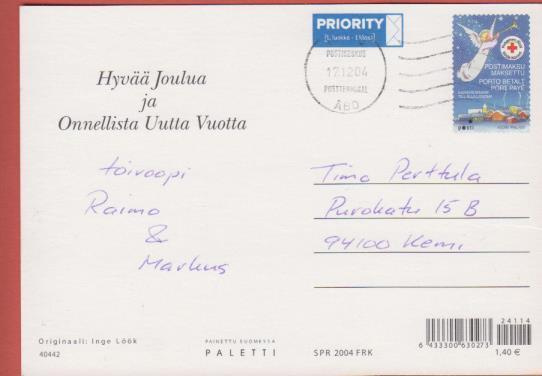 PRIORITY
[1.luokka - 1klass]
POSTIKESKUS
17.12.04
POSTTERMINAL
ÅBO
POSTIMAKSU
MAKSETTU
PORTO BETALT
PORT PAYÉ
Hyvää Joulua
ja
Onnellista Uutta Vuotta
toivoopi
Raimo
&
Markus
Timo Perttula
Purokatu 15 B
94100 Kemi
Originaali: Inge Löök
40442
PAINETTU SUOMESSA
PALETTI
SPR 2004 FRK
24114
6 433300 630273
1,40 €